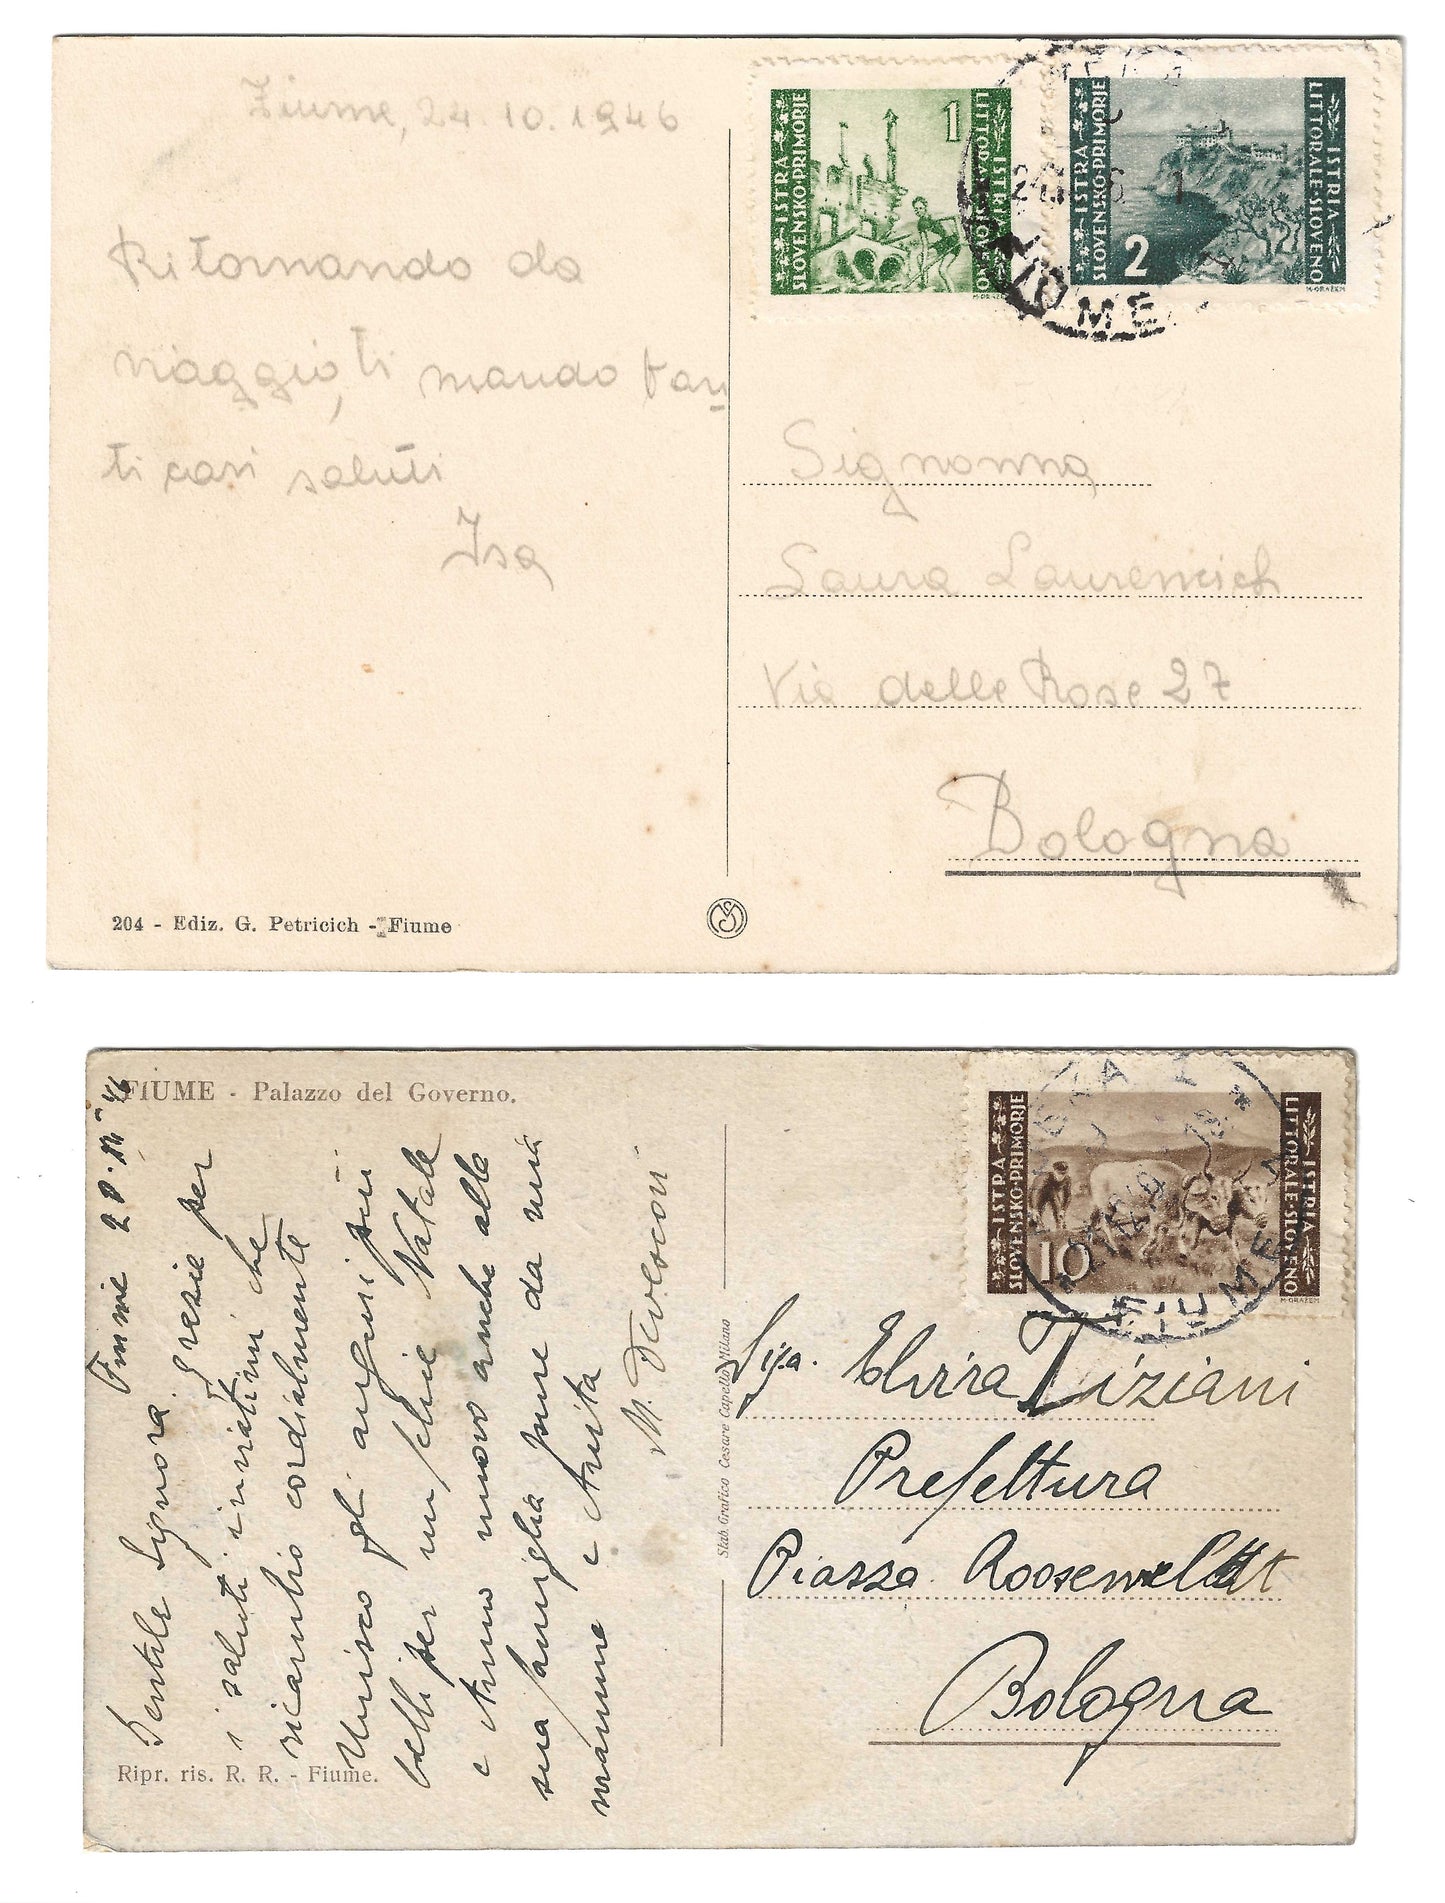 Fiume, 24.10.1946
Ritornando da
viaggio, ti mando tan
ti cari saluti
Isa
204 - Ediz. G. Petricich - Fiume
ISTRA
SLOVENSKO·PRIMORJE
1
ISTRIA
LITTORALE
M·ORAŽEM
ISTRA
SLOVENSKO·PRIMORJE
2
ISTRIA
LITTORALE·SLOVENO
M·ORAŽEM
FIUME
Signorina
Laura Laurencich
Via delle Rose 27
Bologna
FIUME - Palazzo del Governo.
Fiume 28.XII 46
Gentile Signora, grazie per
i saluti inviatimi che
ricambio cordialmente
Unisco gli auguri piu
belli per un felice Natale
e Anno nuovo anche alla
sua famiglia pure da mia
mamma e Anita
M.
Ripr. ris. R. R. - Fiume.
Stab. Grafico Cesare Capello Milano
ISTRA
SLOVENSKO·PRIMORJE
10
ISTRIA
LITTORALE·SLOVENO
M·ORAŽEM
FIUME
Sig.a. Elvira Tiziani
Prefettura
Piazza Roosewelt
Bologna